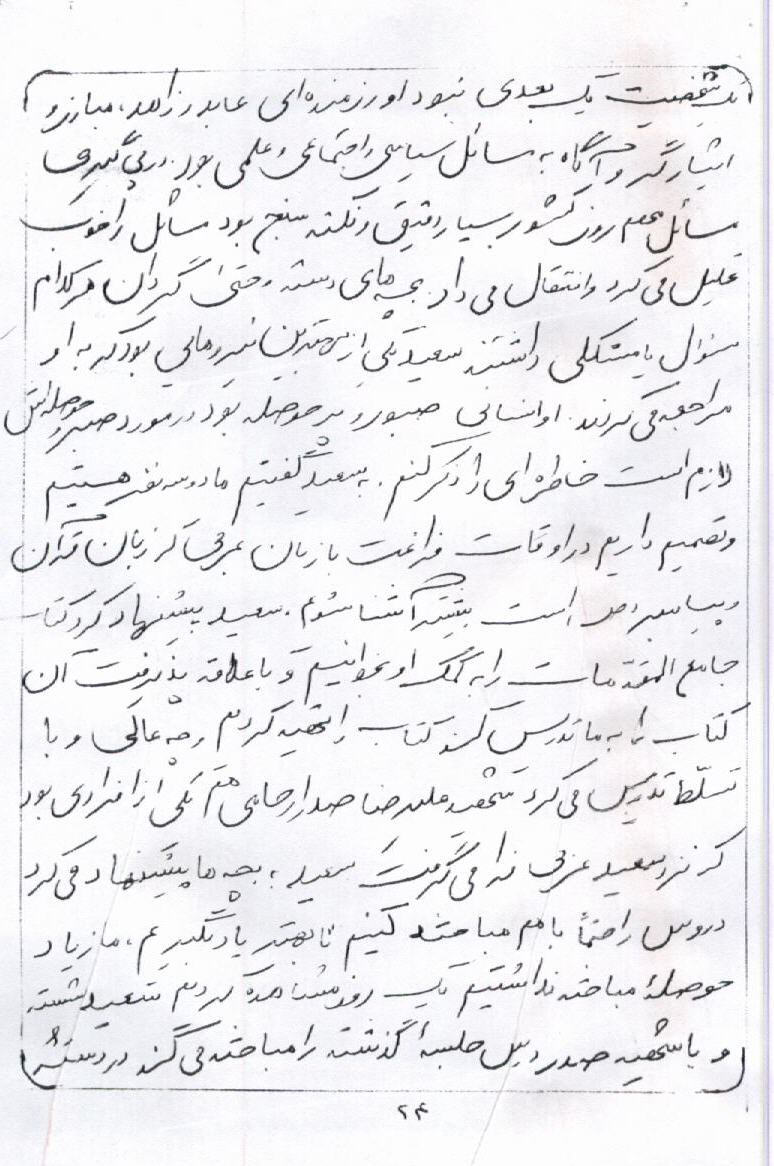 یک شخصیت یک بعدی نبود او رزمنده‌ای عابد و زاهد، مبارز و
ایثارگر و آگاه به مسائل سیاسی و اجتماعی و علمی بود. در پی‌گیری
مسائل مهم روز کشور بسیار دقیق و نکته سنج بود مسائل را خوب
تحلیل می‌کرد و انتقال می‌داد. بچه‌های دسته و حتی گردان هر کدام
سؤال یا مشکلی داشتند سعید یکی از بهترین نیروهایی بود که به او
مراجعه می‌کردند. او انسانی صبور و پر حوصله بود در مورد صبر و حوصله‌اش
لازم است خاطره‌ای را ذکر کنم. به سعید گفتیم ما دو سه نفر هستیم
و تصمیم داریم در اوقات فراغت با زبان عربی که زبان قرآن
و پیامبر (ص) است بیشتر آشنا شویم. سعید پیشنهاد کرد کتاب
جامع المقدمات را به کمک او بخوانیم و با علاقه پذیرفت آن
کتاب را به ما تدریس کند کتاب را تهیه کردیم و چه عالی و با
تسلّط تدریس می‌کرد شهید علیرضا صدرارحامی هم یکی از افرادی بود
که نزد سعید عربی فرا می‌گرفت سعید به بچه‌ها پیشنهاد می‌کرد
دروس را حتماً با هم مباحثه کنیم تا بهتر یاد بگیریم، ما زیاد
حوصلهٔ مباحثه نداشتیم یک روز مشاهده کردیم سعید نشسته
و با شهید صدر درس جلسهٔ گذشته را مباحثه می‌کند در دستش
۲۴